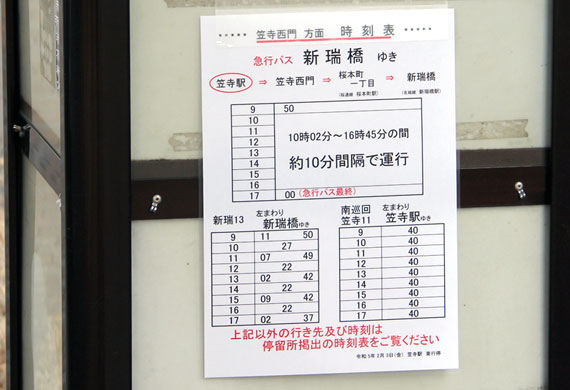 ••••• 笠寺西門 方面 時 刻 表 •••••
急行バス 新 瑞 橋 ゆき
笠寺駅 ⇒ 笠寺西門 ⇒ 桜本町一丁目 ⇒ 新瑞橋
(桜通線 桜本町駅) (名城線 新瑞橋駅)
9 50
10
11 10時02分〜16時45分の間
12
13 約10分間隔で運行
14
15
16
17 00 (急行バス最終)
新瑞13 左まわり 新瑞橋ゆき
9 11 50
10 27
11 07 49
12 22
13 02 42
14 22
15 09 42
16 22
17 02 37
南巡回 笠寺11 左まわり 笠寺駅ゆき
9 40
10 40
11 40
12 40
13 40
14 40
15 40
16 40
17 40
上記以外の行き先及び時刻は
停留所掲出の時刻表をご覧ください
2月3日(金) 笠寺駅